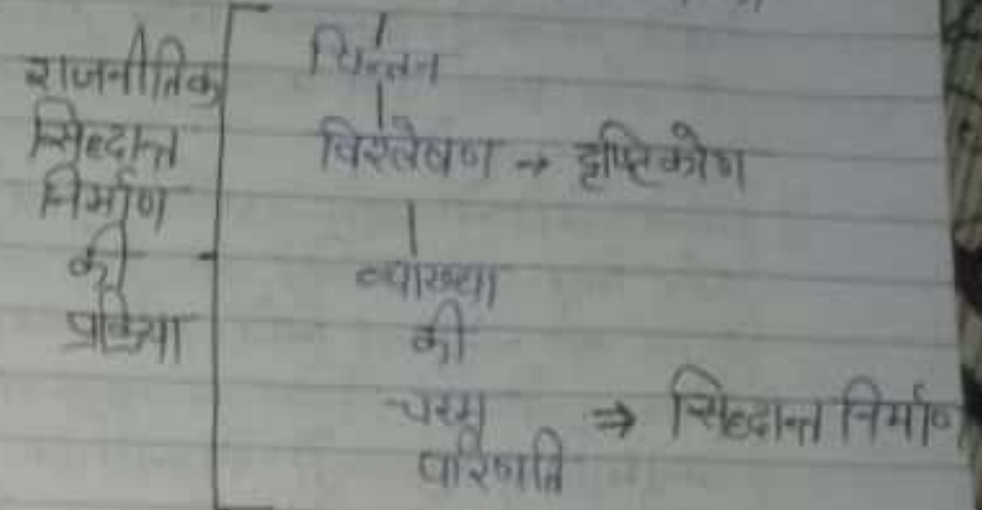 राजनीतिक
सिद्धान्त
निर्माण
की
प्रक्रिया
चिन्तन
विश्लेषण → दृष्टिकोण
व्याख्या
की
चरम ⇒ सिद्धान्त निर्माण
परिणति